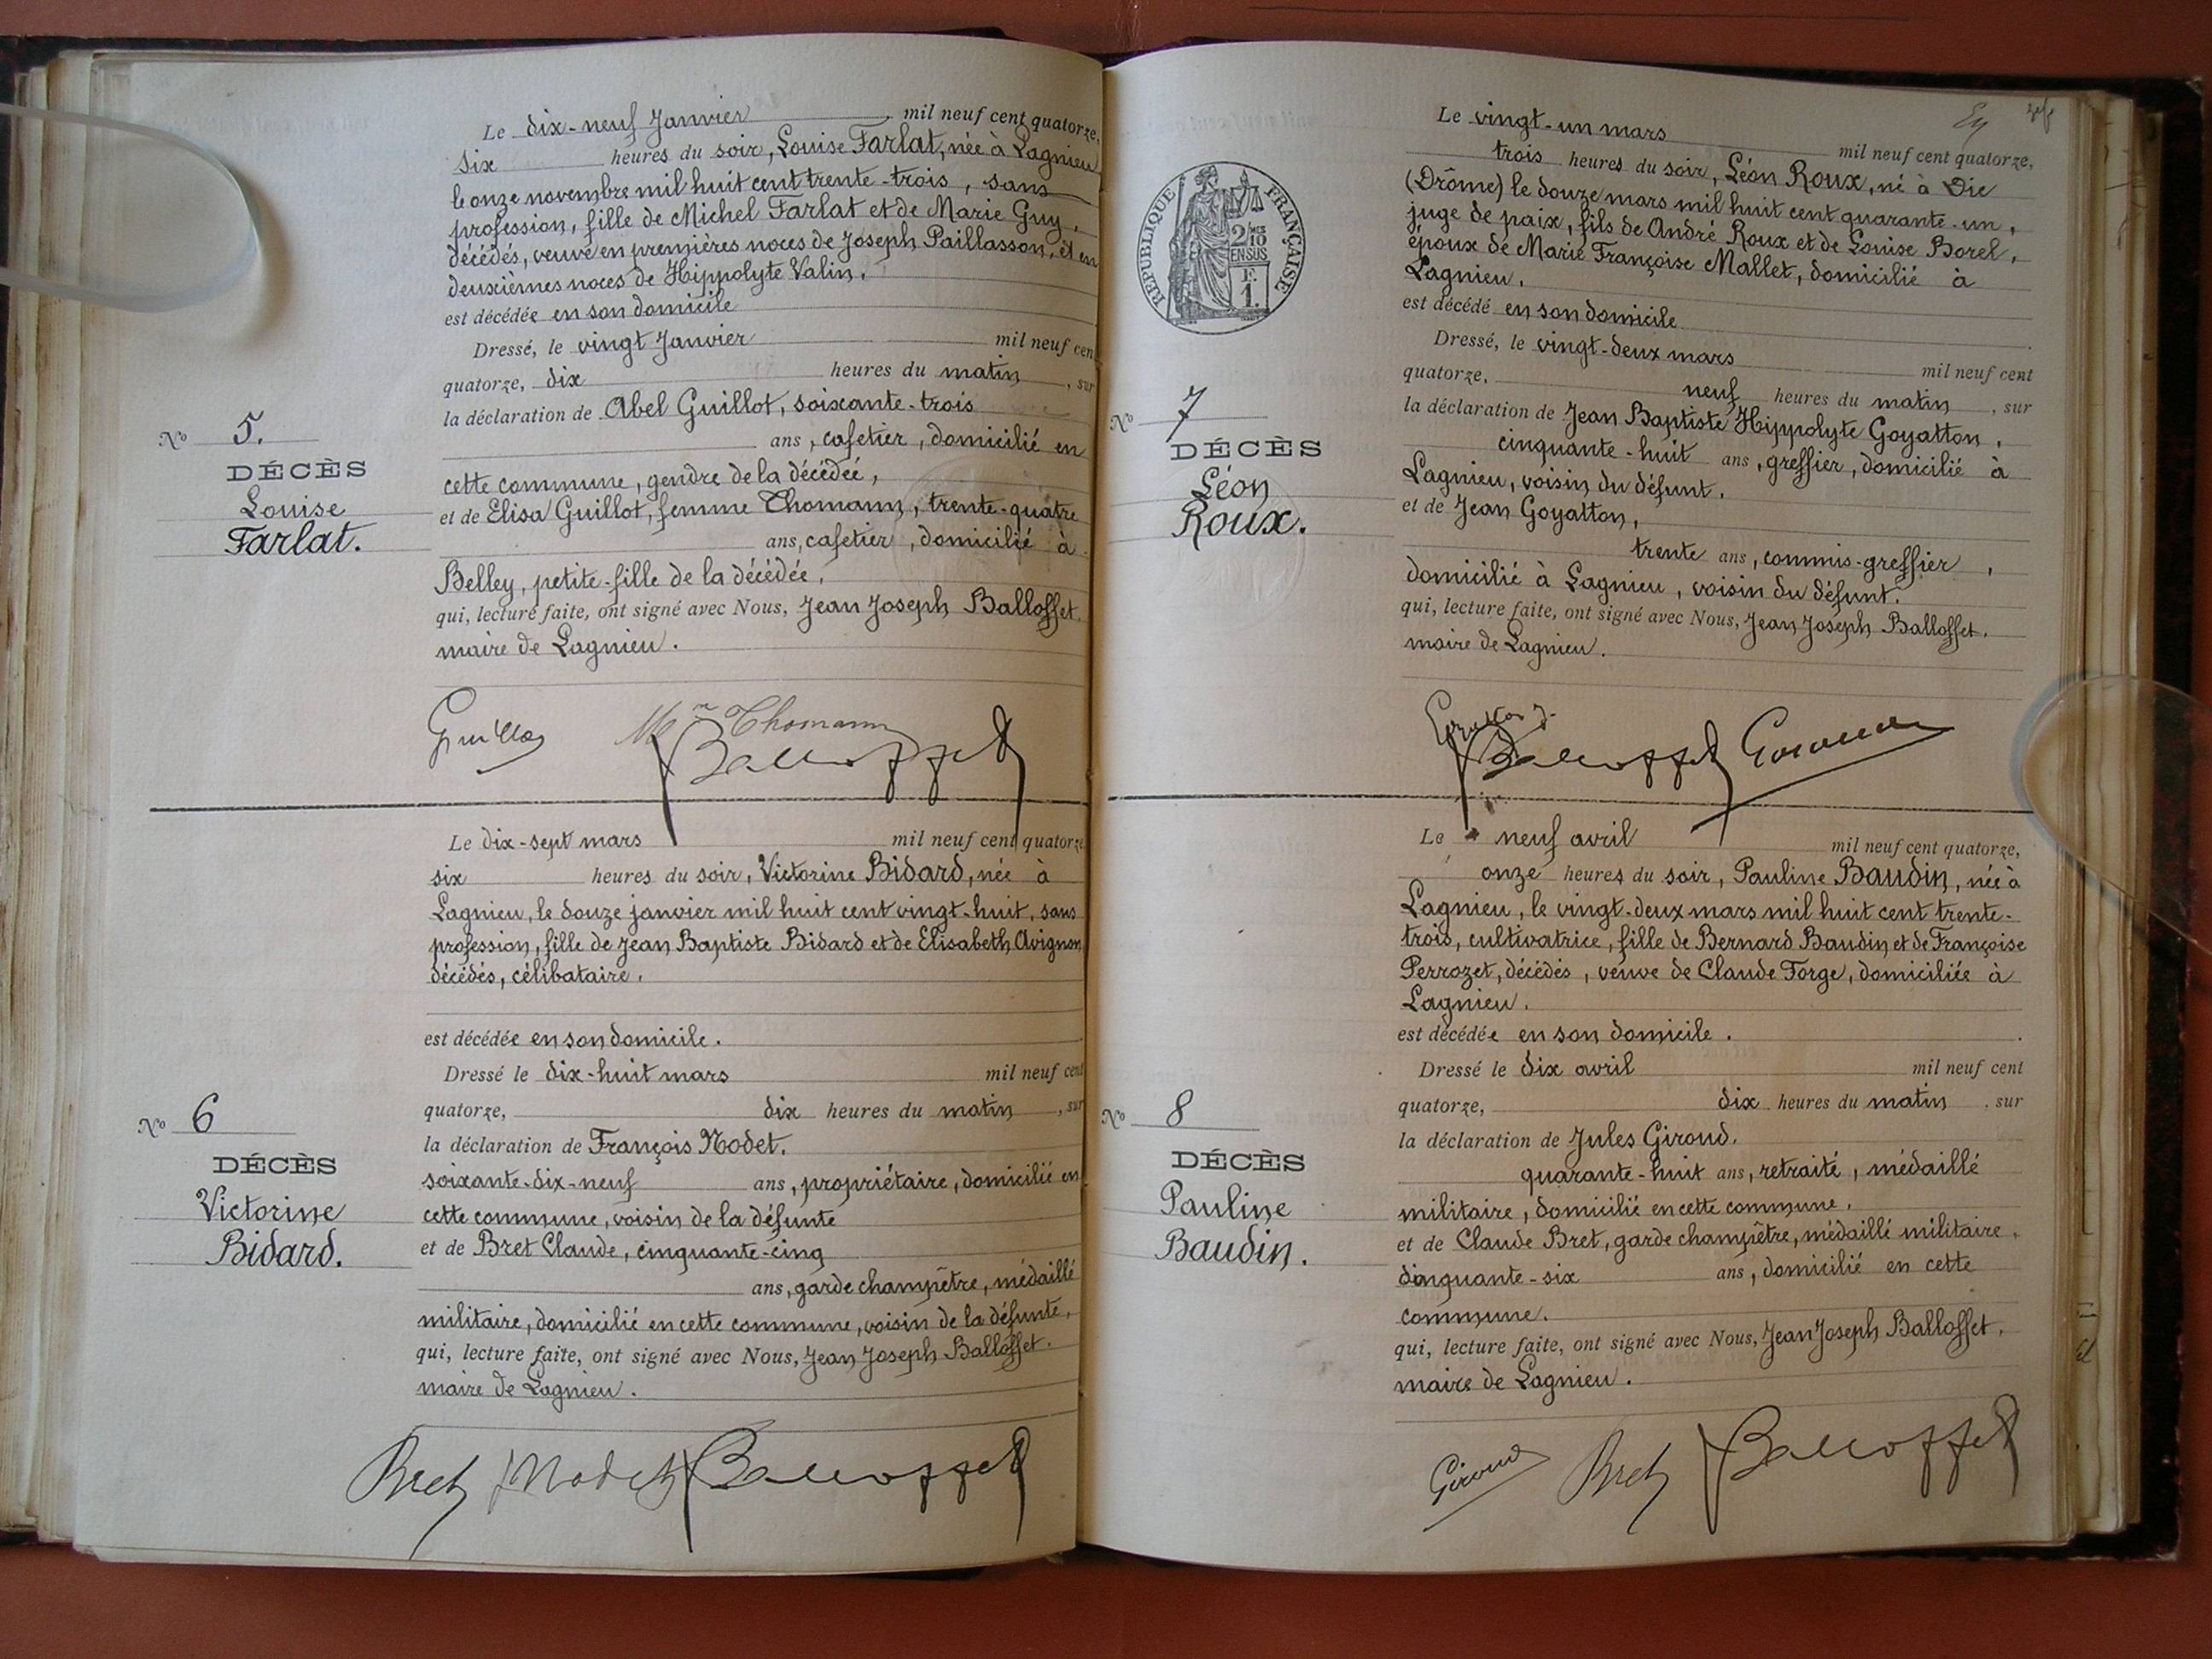 Le dix-neuf Janvier mil neuf cent quatorze,
six heures du soir, Louise Farlat, née à Lagnieu
le onze novembre mil huit cent trente-trois, sans
profession, fille de Michel Farlat et de Marie Guy,
décédés, veuve en premières noces de Joseph Paillasson, et en
deuxièmes noces de Hippolyte Valin,
est décédée en son domicile
Dressé, le vingt Janvier mil neuf cen
quatorze, dix heures du matin, sur
la déclaration de Abel Guillot, soixante-trois
ans, cafetier, domicilié en
cette commune, gendre de la décédée,
et de Elisa Guillot, femme Thomann, trente-quatre
ans, cafetier, domicilié à
Belley, petite-fille de la décédée,
qui, lecture faite, ont signé avec Nous, Jean Joseph Balloffet,
maire de Lagnieu.
No 5.
DÉCÈS
Louise
Farlat.
Guillot Mme Thomann
Balloffet
Le dix-sept mars mil neuf cent quatorze
six heures du soir, Victorine Bidard, née à
Lagnieu, le douze janvier mil huit cent vingt-huit, sans
profession, fille de Jean Baptiste Bidard et de Elisabeth Avignon
décédés, célibataire.
est décédée en son domicile.
Dressé le dix-huit mars mil neuf cent
quatorze, dix heures du matin, sur
la déclaration de François Nodet.
soixante-dix-neuf ans, propriétaire, domicilié en
cette commune, voisin de la défunte
et de Bret Claude, cinquante-cinq
ans, garde champêtre, médaillé
militaire, domicilié en cette commune, voisin de la défunte,
qui, lecture faite, ont signé avec Nous, Jean Joseph Balloffet.
maire de Lagnieu.
No 6
DÉCÈS
Victorine
Bidard.
Bret Nodet Balloffet
Le vingt-un mars mil neuf cent quatorze,
trois heures du soir, Léon Roux, né à Die
(Drôme) le douze mars mil huit cent quarante-un,
juge de paix, fils de André Roux et de Louise Borel,
époux de Marie Françoise Mallet, domicilié à
Lagnieu,
est décédé en son domicile
Dressé, le vingt-deux mars mil neuf cent
quatorze, neuf heures du matin, sur
la déclaration de Jean Baptiste Hippolyte Goyatton,
cinquante-huit ans, greffier, domicilié à
Lagnieu, voisin du défunt,
et de Jean Goyatton,
trente ans, commis-greffier,
domicilié à Lagnieu, voisin du défunt.
qui, lecture faite, ont signé avec Nous, Jean Joseph Balloffet.
maire de Lagnieu.
RÉPUBLIQUE FRANÇAISE
2/10
EN SUS
F.
1.
No 7
DÉCÈS
Léon
Roux.
Balloffet
Le neuf avril mil neuf cent quatorze,
onze heures du soir, Pauline Baudin, née à
Lagnieu, le vingt-deux mars mil huit cent trente-
trois, cultivatrice, fille de Bernard Baudin et de Françoise
Perrozet, décédés, veuve de Claude Forge, domiciliée à
Lagnieu.
est décédée en son domicile.
Dressé le dix avril mil neuf cent
quatorze, dix heures du matin, sur
la déclaration de Jules Giroud.
quarante-huit ans, retraité, médaillé
militaire, domicilié en cette commune,
et de Claude Bret, garde champêtre, médaillé militaire,
cinquante-six ans, domicilié en cette
commune.
qui, lecture faite, ont signé avec Nous, Jean Joseph Balloffet,
maire de Lagnieu.
No 8
DÉCÈS
Pauline
Baudin.
Giroud Bret Balloffet